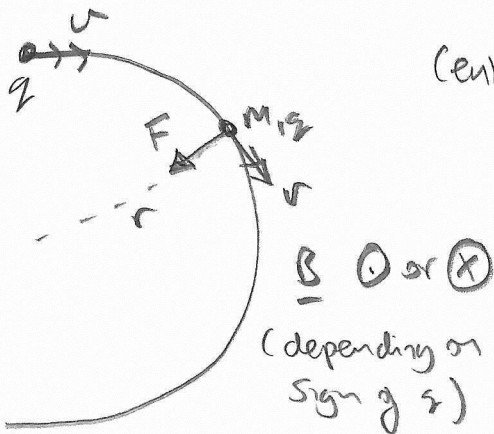 v
q
F
m, q
v
r
B ⊙ or ⊗
(depending on
sign of q)